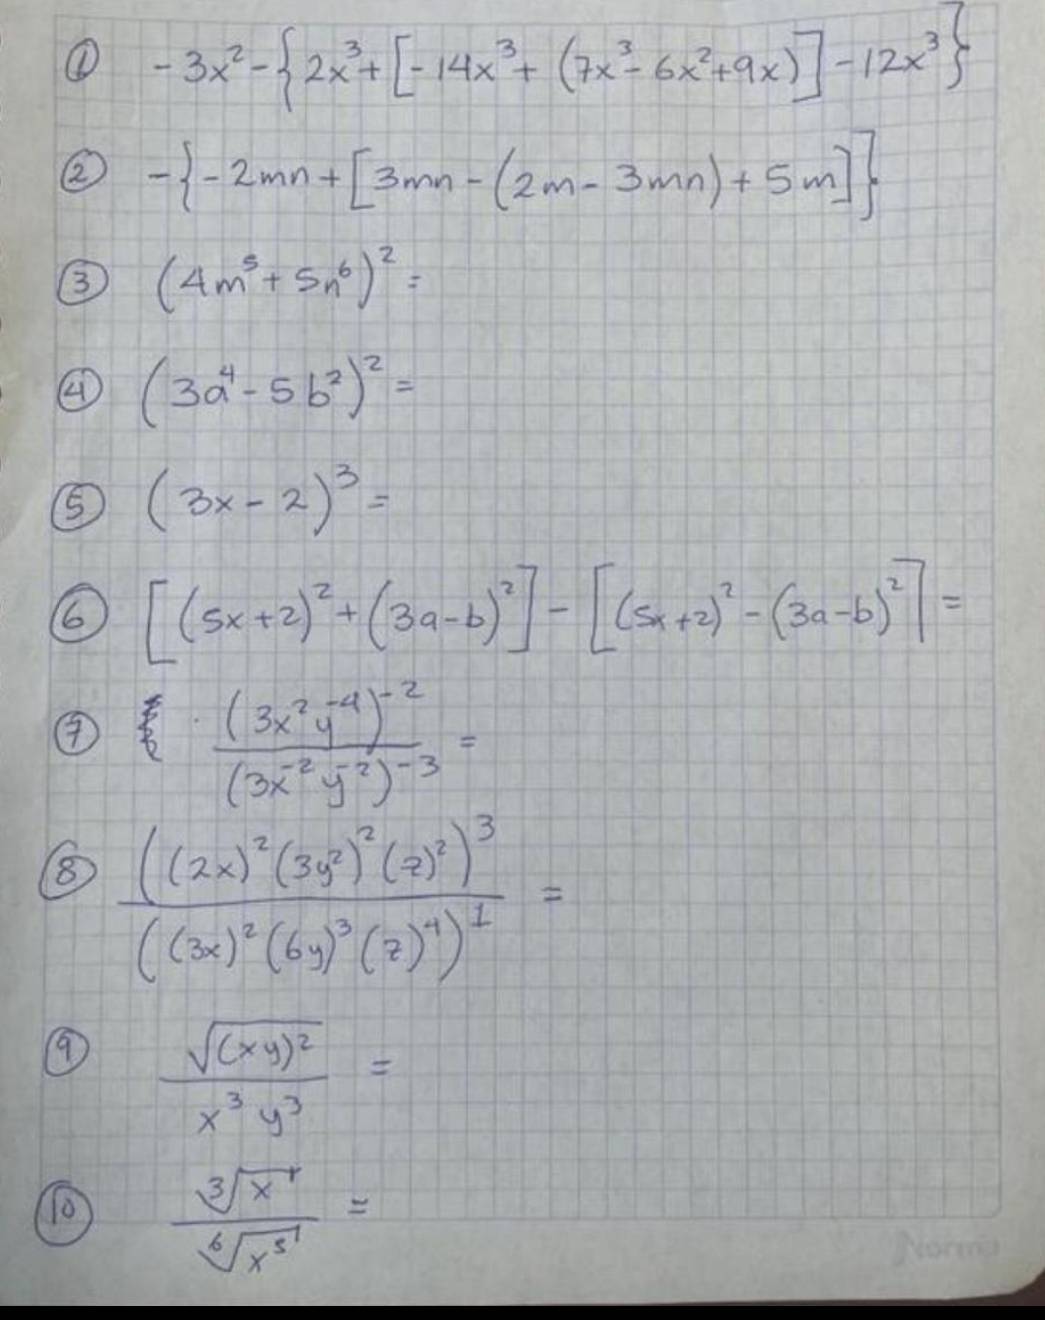 ① -3x² - {2x³ + [-14x³ + (7x³ - 6x² + 9x)] - 12x³}
② -{-2mn + [3mn - (2m - 3mn) + 5m]}
③ (4m⁵ + 5n⁶)² =
④ (3a⁴ - 5b²)² =
⑤ (3x - 2)³ =
⑥ [(5x+2)² + (3a-b)²] - [(5x+2)² - (3a-b)²] =
⑦ (3x²y⁻⁴)⁻² / (3x⁻²y⁻²)⁻³ =
⑧ ((2x)²(3y²)²(z)²)³ / ((3x)²(6y)³(z)⁴)¹ =
⑨ √(xy)² / x³y³ =
⑩ ³√x / ⁶√x⁵ =
Norma